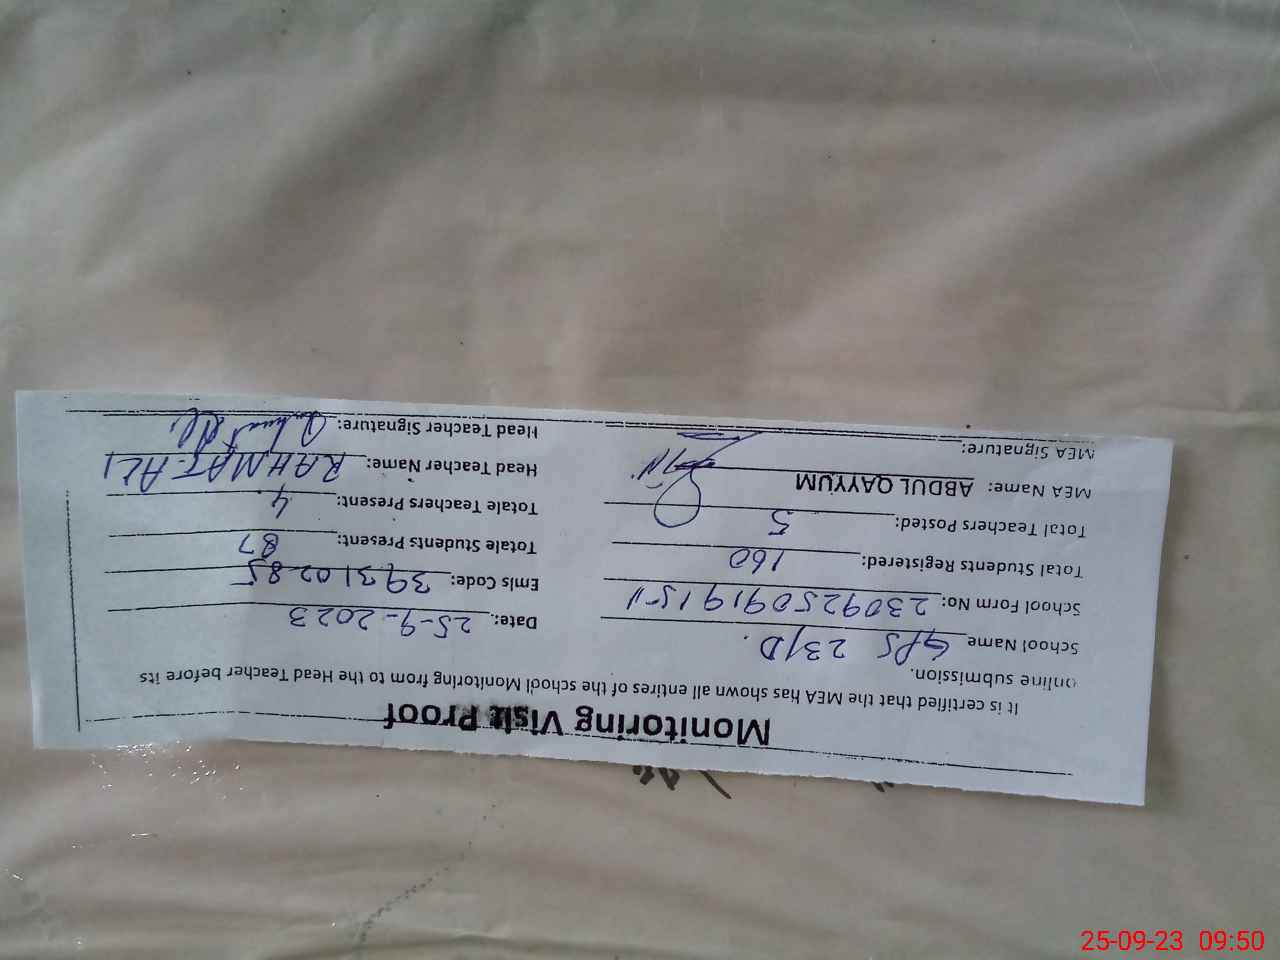 Monitoring Visit Proof
It is certified that the MEA has shown all entires of the school Monitoring from to the Head Teacher before its
online submission.
School Name GPS 23/D. Date: 25-9-2023
School Form No: Emls Code: 39310285
Total Students Registered: 160 Totale Students Present: 87
Total Teachers Posted: 5 Totale Teachers Present: 4
MEA Name: ABDUL QAYYUM Head Teacher Name: RAHMAT ALI
MEA Signature: Head Teacher Signature:
25-09-23 09:50